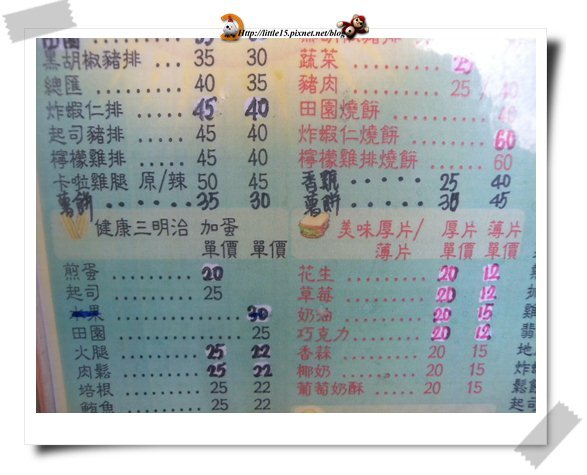 Http://little15.pixnet.net/blog
田園
黑胡椒豬排 ... 35 30
總匯 ............ 40 35
炸蝦仁排 ...... 45 40
起司豬排 ...... 45 40
檸檬雞排 ...... 45 40
卡啦雞腿 原/辣 50 45
薯餅 ........ 35 30
健康三明治 加蛋
單價 單價
煎蛋 ............ 20
起司 ............ 25
水果 .................. 30
田園 .................. 25
火腿 ............ 25 22
肉鬆 ............ 25 22
培根 ............ 25 22
鮪魚 ............ 25 22
蔬菜 ............ 25
豬肉 ............ 25 / 40
田園燒餅 ............ 40
炸蝦仁燒餅 ......... 60
檸檬雞排燒餅 ...... 60
香雞 ...... 25 40
薯餅 ...... 30 45
美味厚片/ 厚片 薄片
薄片 單價 單價
花生 ............ 20 12
草莓 ............ 20 12
奶油 ............ 20 15
巧克力 ......... 20 12
香蒜 ............ 20 15
椰奶 ............ 20 15
葡萄奶酥 ...... 20 15